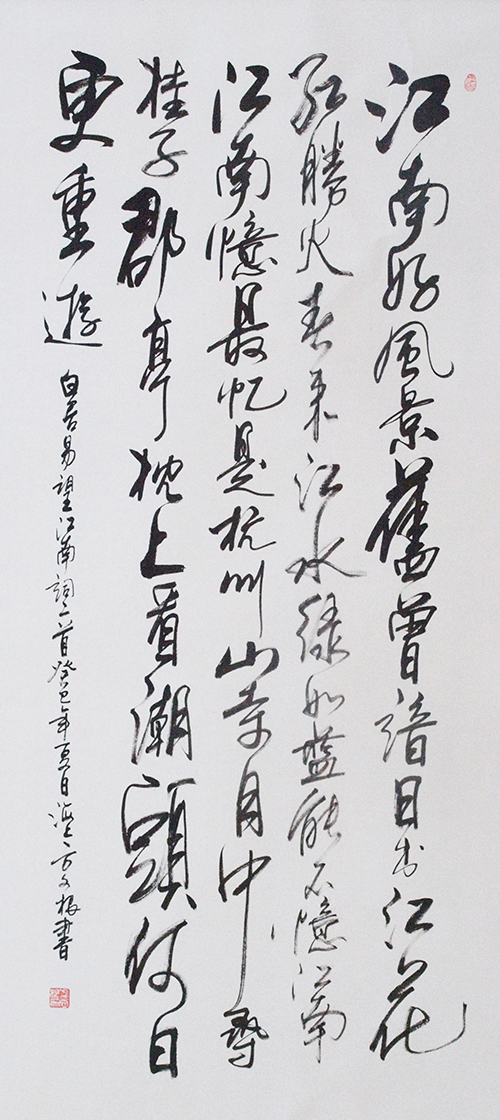 江南好風景舊曾諳日出江花
紅勝火春來江水綠如藍能不憶江南
江南憶最忆是杭州山寺月中尋
桂子郡亭枕上看潮頭何日
更重遊
白居易望江南詞二首癸巳年夏日